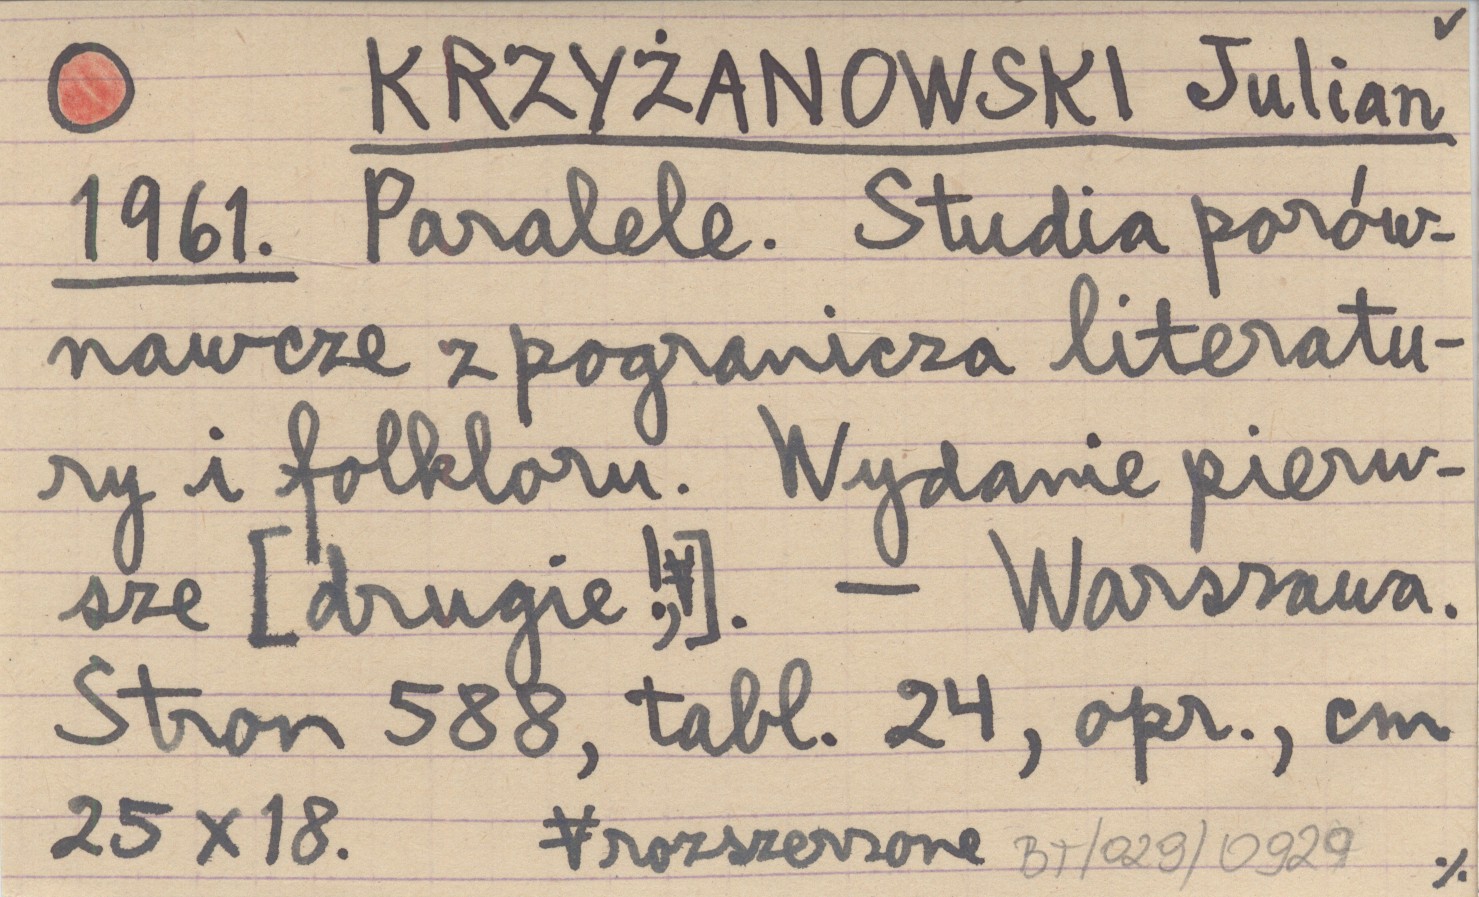 KRZYŻANOWSKI Julian
1961. Paralele. Studia porów-
nawcze z pogranicza literatu-
ry i folkloru. Wydanie pierw-
sze [drugie!,∀]. — Warszawa.
Stron 588, tabl. 24, opr., cm
25 x 18. ∀rozszerzone BT/029/0929
·/.